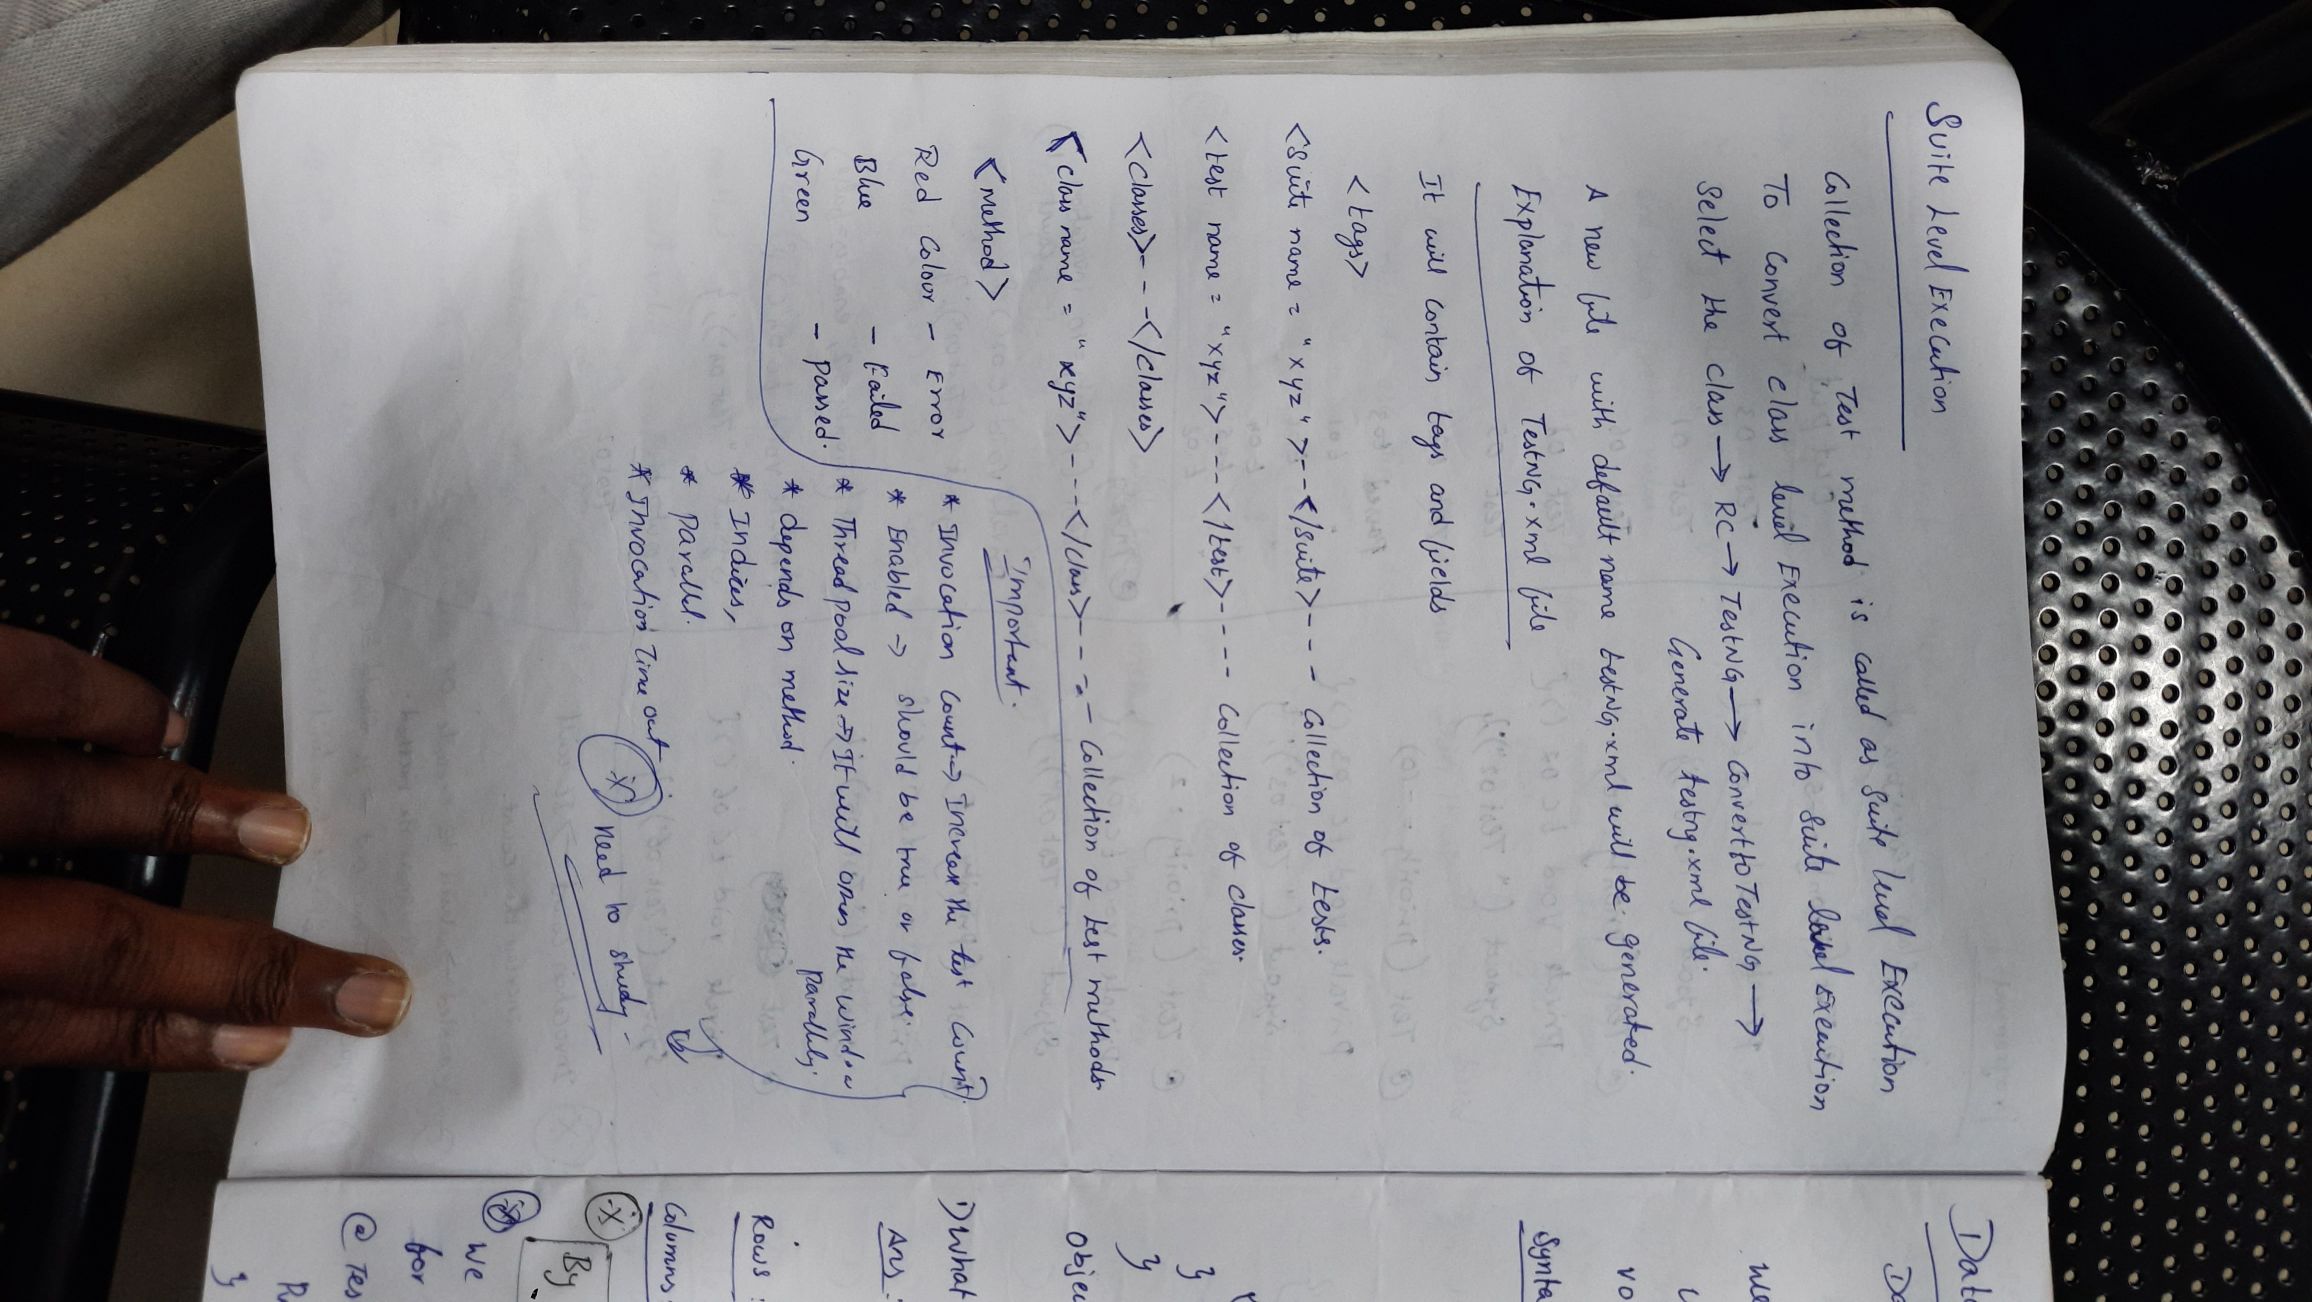 Suite Level Execution
Collection of Test method is called as suite level Execution
To convert class level Execution into suite level Execution
Select the class → RC → TestNG → Convert to TestNG →
Generate testng.xml file.
A new file with default name testNG.xml will be generated.
Explanation of TestNG.xml file
It will contain tags and fields
<tags>
<suite name = "xyz">--</suite>--- Collection of tests.
<test name = "xyz">---</test>---- Collection of classes.
<classes>---</classes>
<class name = "xyz">---</class>---- Collection of test methods.
<method>
Red Colour - Error
Blue - Failed
Green - Passed.
Important.
* Invocation Count → Increase the test Count.
* Enabled → should be true or false.
* Thread pool size → It will open the window
parallely.
* depends on method.
* Indices,
* Parallel.
* Invocation Time out
need to study -
Data
We
Synta
vo
}
}
Objec
1) What
Ans:
Rows:
Columns:
By
We
for
@ Tes
}